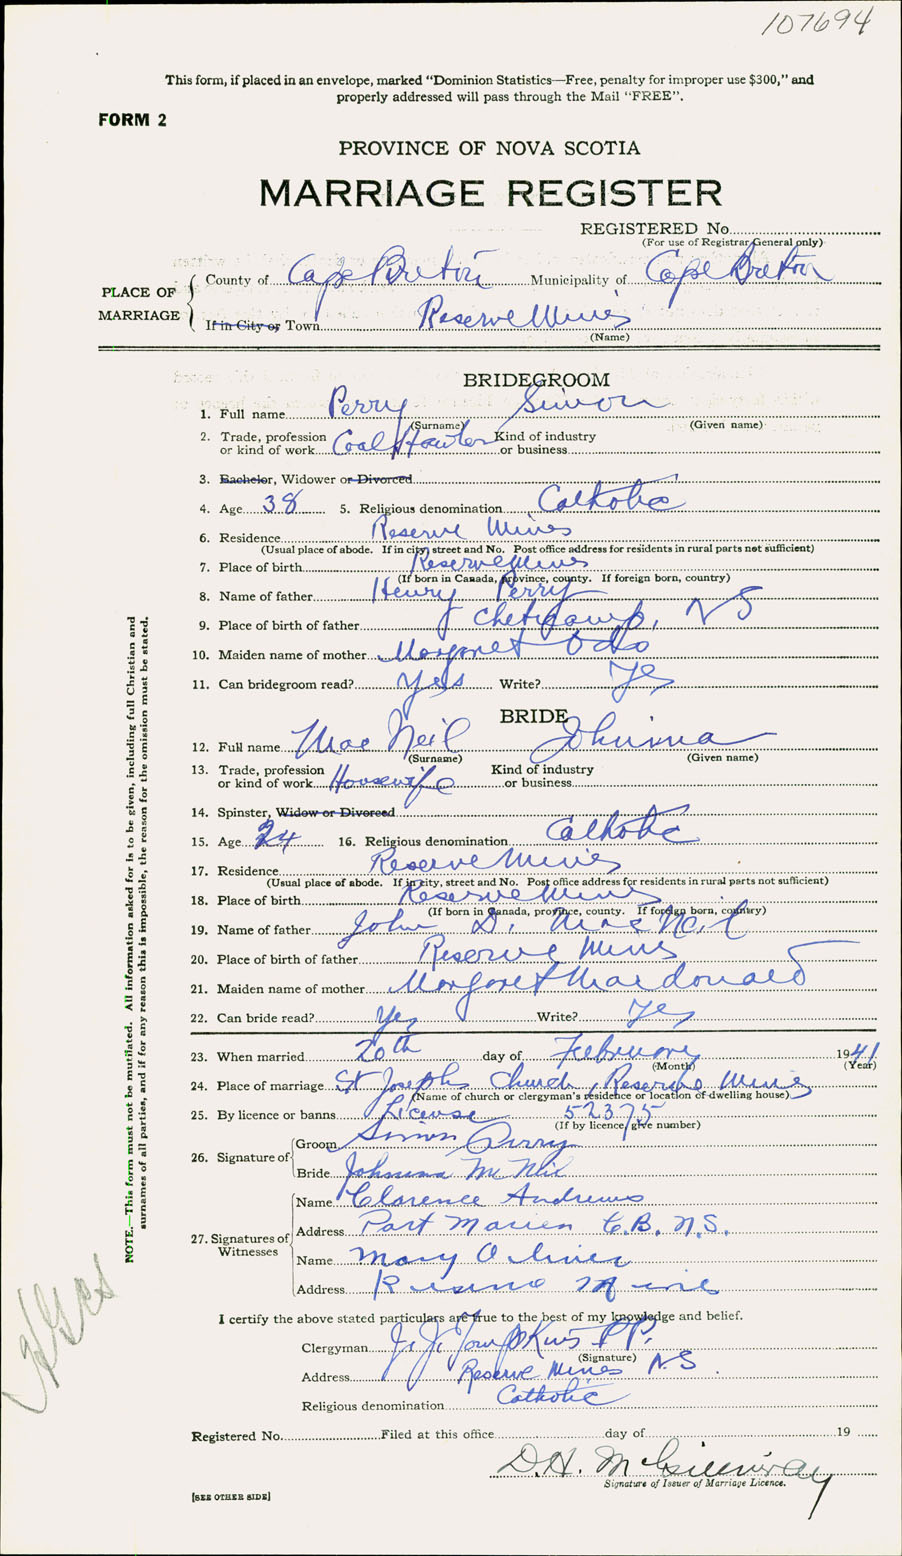 107694
This form, if placed in an envelope, marked “Dominion Statistics—Free, penalty for improper use $300,” and
properly addressed will pass through the Mail “FREE”.
FORM 2
PROVINCE OF NOVA SCOTIA
MARRIAGE REGISTER
REGISTERED No.
(For use of Registrar General only)
PLACE OF MARRIAGE
County of Cape Breton Municipality of Cape Breton
If in City or Town Reserve Mines
(Name)
BRIDEGROOM
1. Full name Perry Simon
(Surname) (Given name)
2. Trade, profession or kind of work Coal Kind of industry or business
3. Bachelor, Widower or Divorced
4. Age 38 5. Religious denomination Catholic
6. Residence Reserve Mines
(Usual place of abode. If in city, street and No. Post office address for residents in rural parts not sufficient)
7. Place of birth Reserve Mines
(If born in Canada, province, county. If foreign born, country)
8. Name of father Henry Perry
9. Place of birth of father Cheticamp, NS
10. Maiden name of mother Margaret
11. Can bridegroom read? Yes Write? Yes
BRIDE
12. Full name Mac Neil Johnina
(Surname) (Given name)
13. Trade, profession or kind of work Housewife Kind of industry or business
14. Spinster, Widow or Divorced
15. Age 24 16. Religious denomination Catholic
17. Residence Reserve Mines
(Usual place of abode. If in city, street and No. Post office address for residents in rural parts not sufficient)
18. Place of birth Reserve Mines
(If born in Canada, province, county. If foreign born, country)
19. Name of father John D. MacNeil
20. Place of birth of father Reserve Mines
21. Maiden name of mother Margaret Macdonald
22. Can bride read? Yes Write? Yes
23. When married 20th day of February 1941
(Month) (Year)
24. Place of marriage St Josephs Church, Reserve Mines
(Name of church or clergyman's residence or location of dwelling house)
25. By licence or banns License 52375
(If by licence, give number)
26. Signature of
Groom Simon Perry
Bride Johnina Mc Neil
27. Signatures of Witnesses
Name Clarence Andrews
Address Port Marien C.B. N.S.
Name Mary Oliver
Address Reserve Mines
I certify the above stated particulars are true to the best of my knowledge and belief.
Clergyman J. J. Tompkins P.P.
(Signature)
Address Reserve Mines NS.
Religious denomination Catholic
Registered No. Filed at this office day of 19
D.H. McGillivray
Signature of Issuer of Marriage Licence.
[SEE OTHER SIDE]
NOTE.—This form must not be mutilated. All information asked for is to be given, including full Christian and
surnames of all parties, and if for any reason this is impossible, the reason for the omission must be stated.